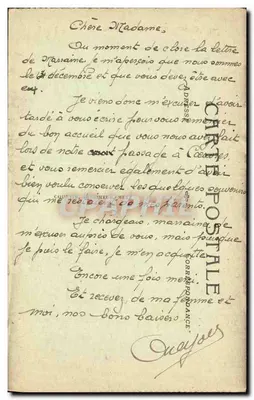 Chère Madame,
Au moment de clore la lettre
de Marraine je m'aperçois que nous sommes
le decembre et que vous devez être avec
Je viens donc m'excuser d'avoir
tardé à vous écrire pour vous remercier
du bon accueil que vous nous avez fait
lors de notre passade à
et vous remercier également d'avoir
bien voulu conserver les quelques souvenirs
qui
Je chargeais, marraine de
m'excuser auprès de vous, mais puisque
je puis le faire, je m'en acquitte.
Encore une fois merci
Et recevez, de ma femme et
moi, nos bons baisers
CARTE POSTALE
CORRESPONDANCE
ADRESSE